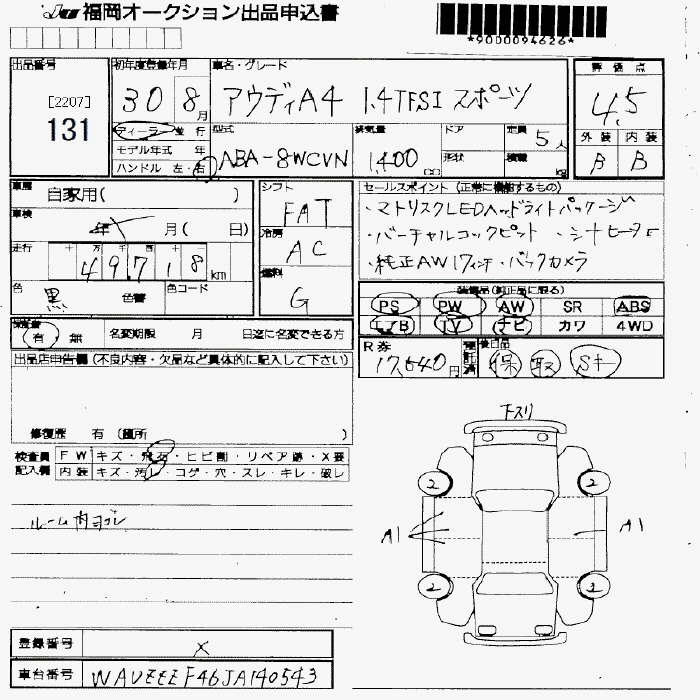 JU 福岡オークション出品申込書
*9000094626*
出品番号 初年度登録年月 車名・グレード 評価点
[2207] 30 8月 アウディA4 1.4TFSI スポーツ 4.5
131 ディーラー 並行 型式 排気量 ドア 定員 5人 外装 内装
モデル年式 年 ABA-8WCVN 1,400cc 形状 積載 kg B B
ハンドル 左・右
車歴 自家用( ) シフト FAT セールスポイント (正常に機能するもの)
車検 年 X 月( 日) 冷房 AC ・マトリスクLEDヘッドライトパッケージ
走行 十 万 千 百 十 49718km ・バーチャルコックピット ・シートヒーター
色 黒 色替 色コード 燃料 G ・純正AW17インチ・バックカメラ
装備品(純正品に限る)
PS PW AW SR ABS
エアB TV ナビ カワ 4WD
保証書 有 無 名変期限 月 日迄に名変できる方
R券 17,640円 後日品 保 取 Sキー
出品店申告欄 (不良内容・欠品など具体的に記入して下さい)
修復歴 有 (箇所 )
検査員 FW キズ・飛石・ヒビ割・リペア跡・X要
記入欄 内装 キズ・汚レ・コゲ・穴・スレ・キレ・破レ
下スリ
2 2
ルーム内ヨゴレ
A1 A1
2 2
登録番号 X
車台番号 WAUZZZF46JA140543